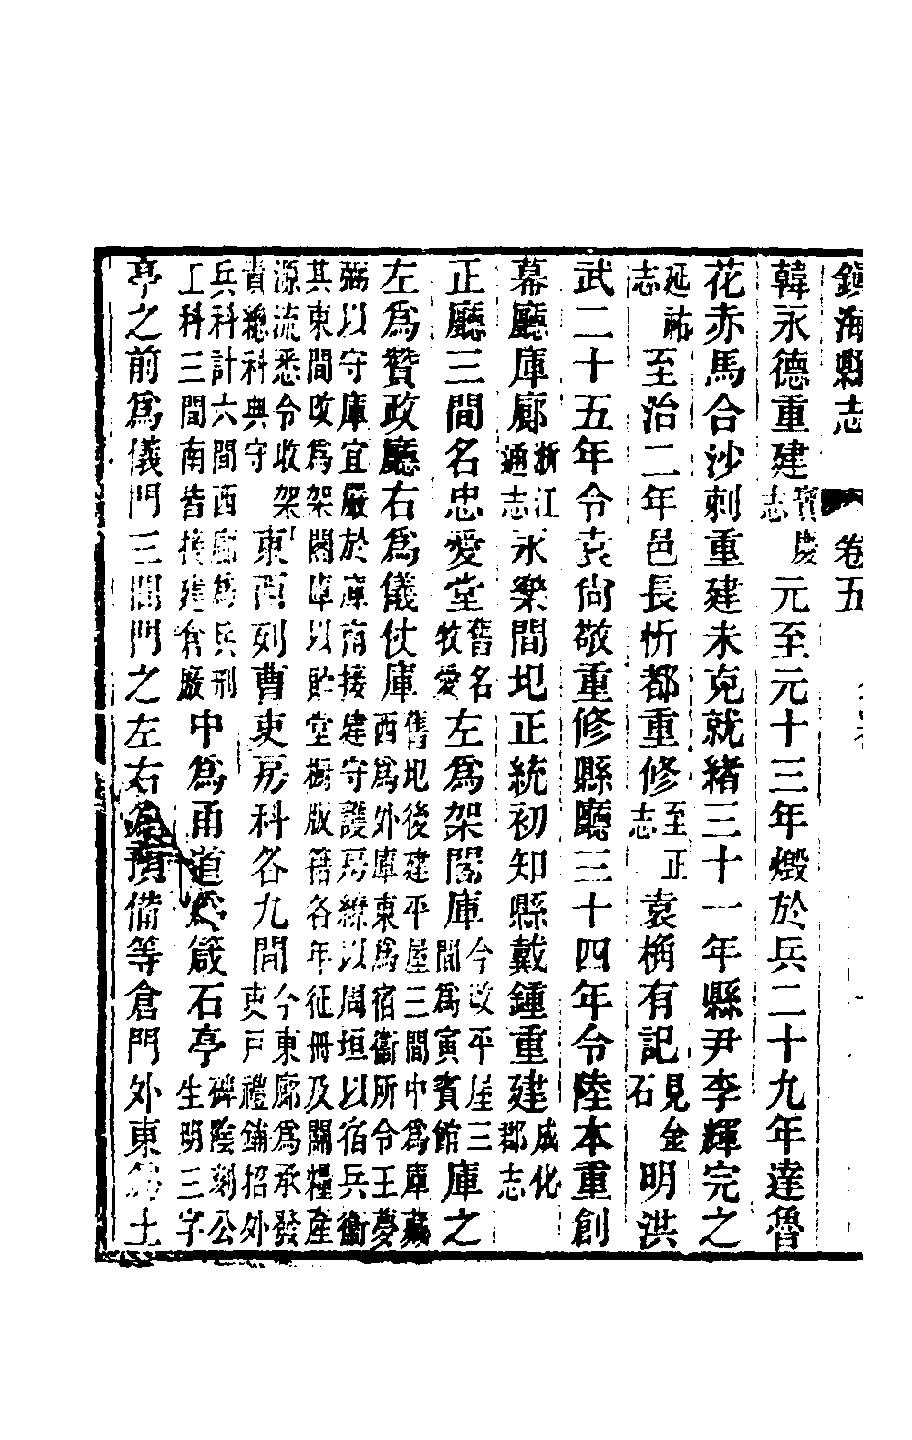 鎮海縣志 卷五
韓永德重建寶慶志元至元十三年燬於兵二十九年達魯
花赤馬合沙刺重建未克就緒三十一年縣尹李輝完之
延祐志至治二年邑長忻都重修至正志袁桷有記見金石明洪
武二十五年令袁尙敬重修縣廳三十四年令陸本重創
幕廳庫廊浙江通志永樂間圮正統初知縣戴鍾重建成化郡志
正廳三間名忠愛堂舊名牧愛左爲架閣庫今改平屋三間爲寅賓館庫之
左爲贊政廳右爲儀仗庫舊圮後建平屋三間中爲庫藏西爲外庫東爲宿衞所令王夢
弼以守庫宜嚴於庫南接建守護房繚以周垣以宿兵衞其東間改爲架閣庫以貯堂櫥版籍各年征冊及關糧產
源流悉令收架責總科典守東西列曹吏房科各九間今東廊爲承發吏戶禮鋪招外
兵科計六間西廊爲兵刑工科三間南皆接建倉廠中爲甬道爲箴石亭碑陰刻公生明三字
亭之前爲儀門三間門之左右爲預備等倉門外東爲土